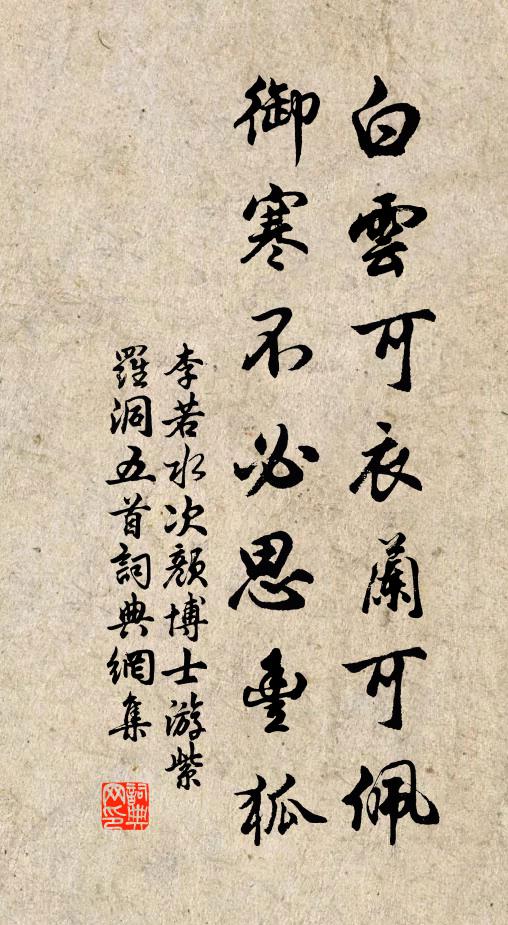 白雲可衣蘭可佩
御寒不必思豊狐
李若水次顏博士游紫
羅洞五首詞典網集
詞典
网印